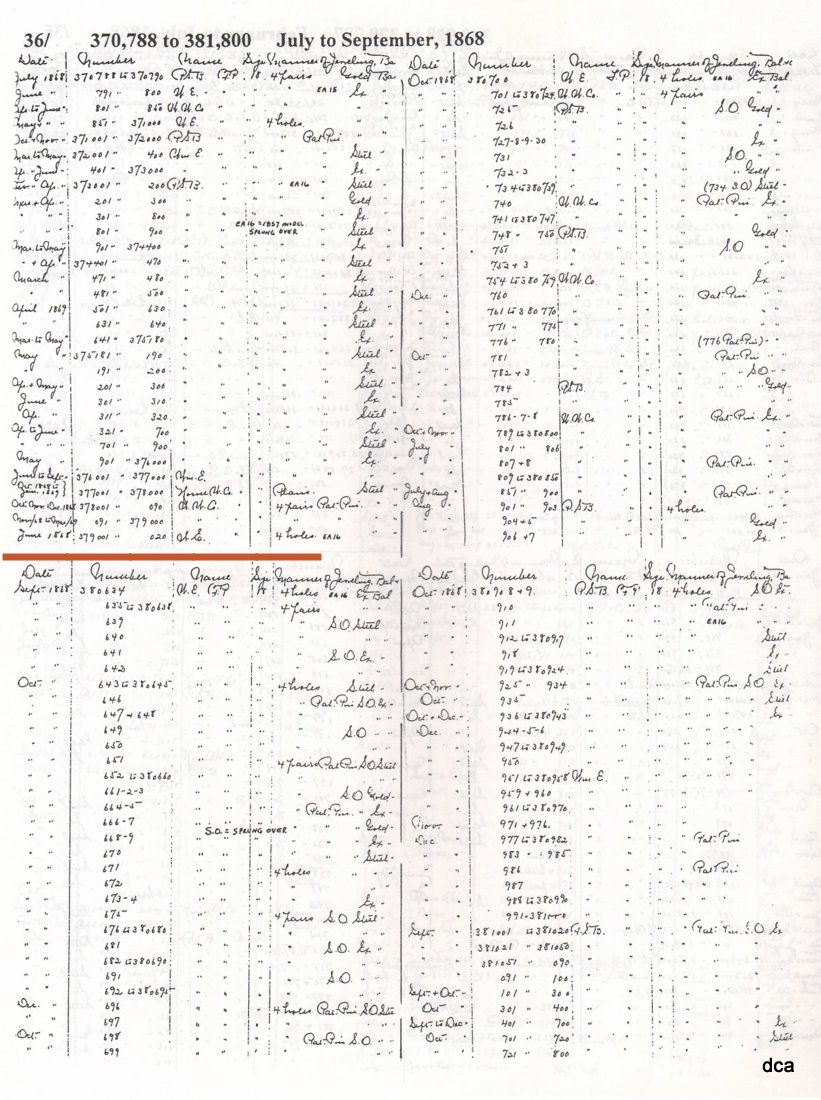 36/ 370,788 to 381,800 July to September, 1868
Date Number Name Size Manner of Jeweling, Ba
July 1868 370788 to 370790 P.S.B. F.P. 18. 4 pairs Gold Ba
June 791 " 800 W.E. " EA15 Ex "
801 " 850 W.W.Co
851 " 371000 " 4 holes
371001 " 372000 P.S.B. Pat. Pin
Mar. to May 372001 " 400 Wm E. Steel
401 " 373000 Ex.
373001 " 200 P.S.B. EA16 Steel
201 " 300 Gold
301 " 800 Ex
801 " 900 EA16 = 1857 MODEL SPRUNG OVER Steel
Mar. to May 901 " 374400 Ex
374401 " 470 Steel
March 471 " 480 Ex
481 " 500 Steel
April 1869 501 " 630 Ex
631 " 640 Steel
Mar. to May 641 " 375180 Ex.
May 375181 " 190 Steel
191 " 200 Ex
201 " 300 Steel
June 301 " 310 Ex
Ap. 311 " 320 Steel
Ap. to June 321 " 700 Ex.
701 " 900 Steel
May 901 " 376000 Ex
June to Sept. 376001 " 377000 Wm. E.
377001 " 378000 Home W.Co. Steel
378001 " 090 W.W.C. 4 pairs Pat. Pin
091 " 379000
June 1868 379001 " 020 W.E. 4 holes EA16
Date Number Name Size Manner of Jeweling
Oct 1868 380700 W.E. F.P. 18. 4 holes EA16 Ex Bal
701 to 380724 W.W.Co. 4 pairs
725 P.S.B. S.O. Gold
726
727-8-9-30 Ex
731 S.O.
732-3 Gold
734 to 380739 (734 S.O.) Steel
740 W.W.Co Pat. Pin Ex.
741 to 380747
748 " 750 P.S.B. Gold
751 S.O.
752+3
754 to 380759 W.W.Co. Ex
Dec. 760 Pat. Pin
761 to 380770
771 " 775
776 " 780 (776 Pat. Pin)
Oct 781 Pat. Pin
782+3 S.O.
784 P.S.B. Gold
785
786-7-8 W.W.Co. Pat. Pin Ex.
Oct + Nov 789 to 380800
July 801 " 806
807+8 Pat. Pin
809 to 380850
July + Aug 851 " 900 Pat. Pin
Aug 901 " 903 P.S.B. 4 holes
904+5 Gold
906+7 Ex.
Date Number Name Size Manner of Jeweling, Bal
Sept. 1868 380634 W.E. F.P. 18 4 holes EA16 Ex Bal
635 to 380638 4 pairs
639 S.O. Steel
640
641 S.O. Ex.
642
Oct 643 to 380645 4 holes Steel
646 Pat. Pin S.O. Ex
647+648
649 S.O.
650
651 4 pairs Pat Pin S.O. Steel
652 to 380660
661-2-3 S.O. Gold
664-5 Pat. Pin Ex
666-7 S.O. = SPRUNG OVER Gold
668-9 Ex
670 Steel
671 4 holes
672
673-4 Ex
675 4 pairs S.O. Steel
676 to 380680
681 S.O. Ex
682 to 380690
691 S.O.
692 to 380695
Dec. 696 4 holes Pat. Pin S.O. Ste
697
Oct 698 Pat. Pin S.O.
699
Date Number Name Size Manner of Jeweling, Ba
Oct 1868 380908+9. P.S.B. F.P. 18. 4 holes S.O.
910 Pat. Pin
911 EA16
912 to 380917 Steel
918 Ex
919 to 380924 Steel
Oct + Nov 925 " 934 Pat. Pin S.O. Ex
Oct. 935 Steel
Oct. + Dec. 936 to 380943 Ex
Dec. 944-5-6
947 to 380949
950
951 to 380958 Wm E.
959+960
961 to 380970
Nov. 971+976
Dec 977 to 380982 Pat. Pin
983 " 985
986 Pat Pin
987
988 to 380990
991-381000
Sept. 381001 to 381020 P.S.B. Pat. Pin S.O. Ex
381021 " 381050
381051 " 090
091 " 100
Sept. + Oct 101 " 300
Oct 301 " 400
Sept. to Dec 401 " 700 Ex
Oct. 701 " 720 Steel
721 " 800
dca